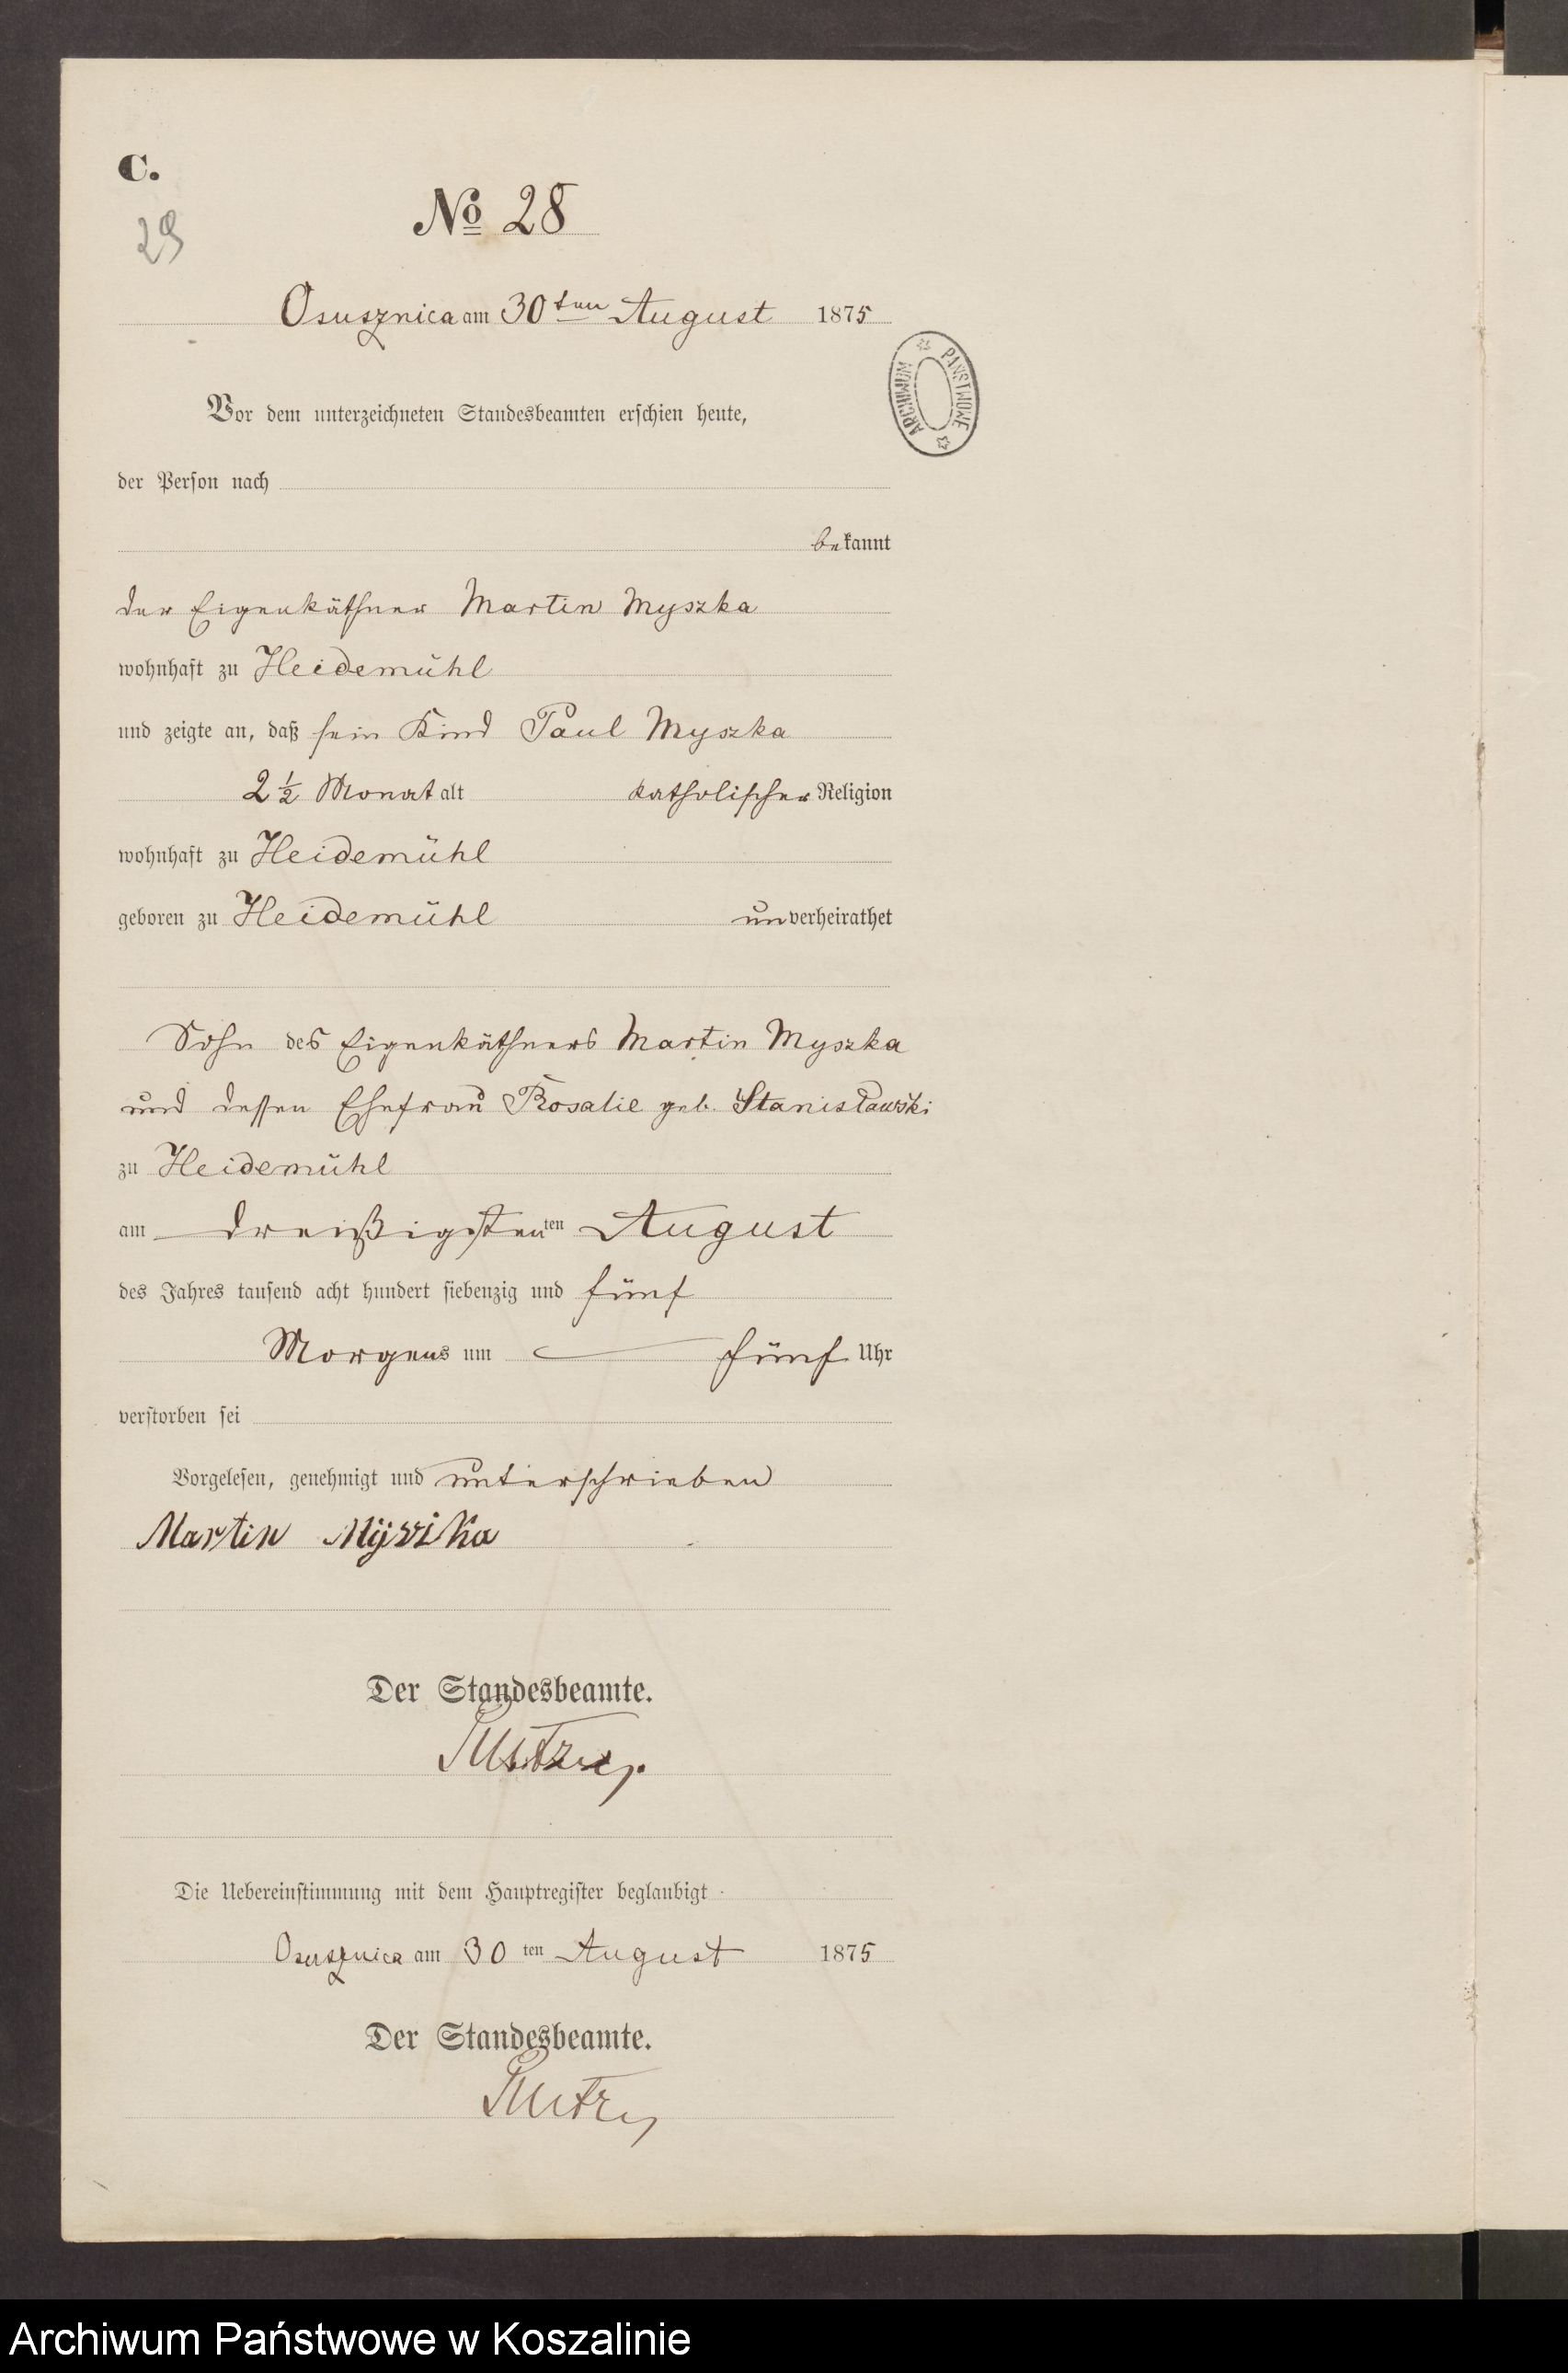 C.
29
No 28
Osusznica am 30ten August 1875
ARCHIWUM PAŃSTWOWE
Vor dem unterzeichneten Standesbeamten erschien heute,
der Person nach
bekannt
der Eigenkäthner Martin Myszka
wohnhaft zu Heidemühl
und zeigte an, daß sein Kind Paul Myszka
2 1/2 Monat alt katholischer Religion
wohnhaft zu Heidemühl
geboren zu Heidemühl unverheirathet
Sohn des Eigenkäthners Martin Myszka
und dessen Ehefrau Rosalie geb. Stanisławski
zu Heidemühl
am dreißigsten ten August
des Jahres tausend acht hundert siebenzig und fünf
Morgens um fünf Uhr
verstorben sei
Vorgelesen, genehmigt und unterschrieben
Martin
Der Standesbeamte.
Die Uebereinstimmung mit dem Hauptregister beglaubigt
Osusznica am 30 ten August 1875
Der Standesbeamte.
Archiwum Państwowe w Koszalinie